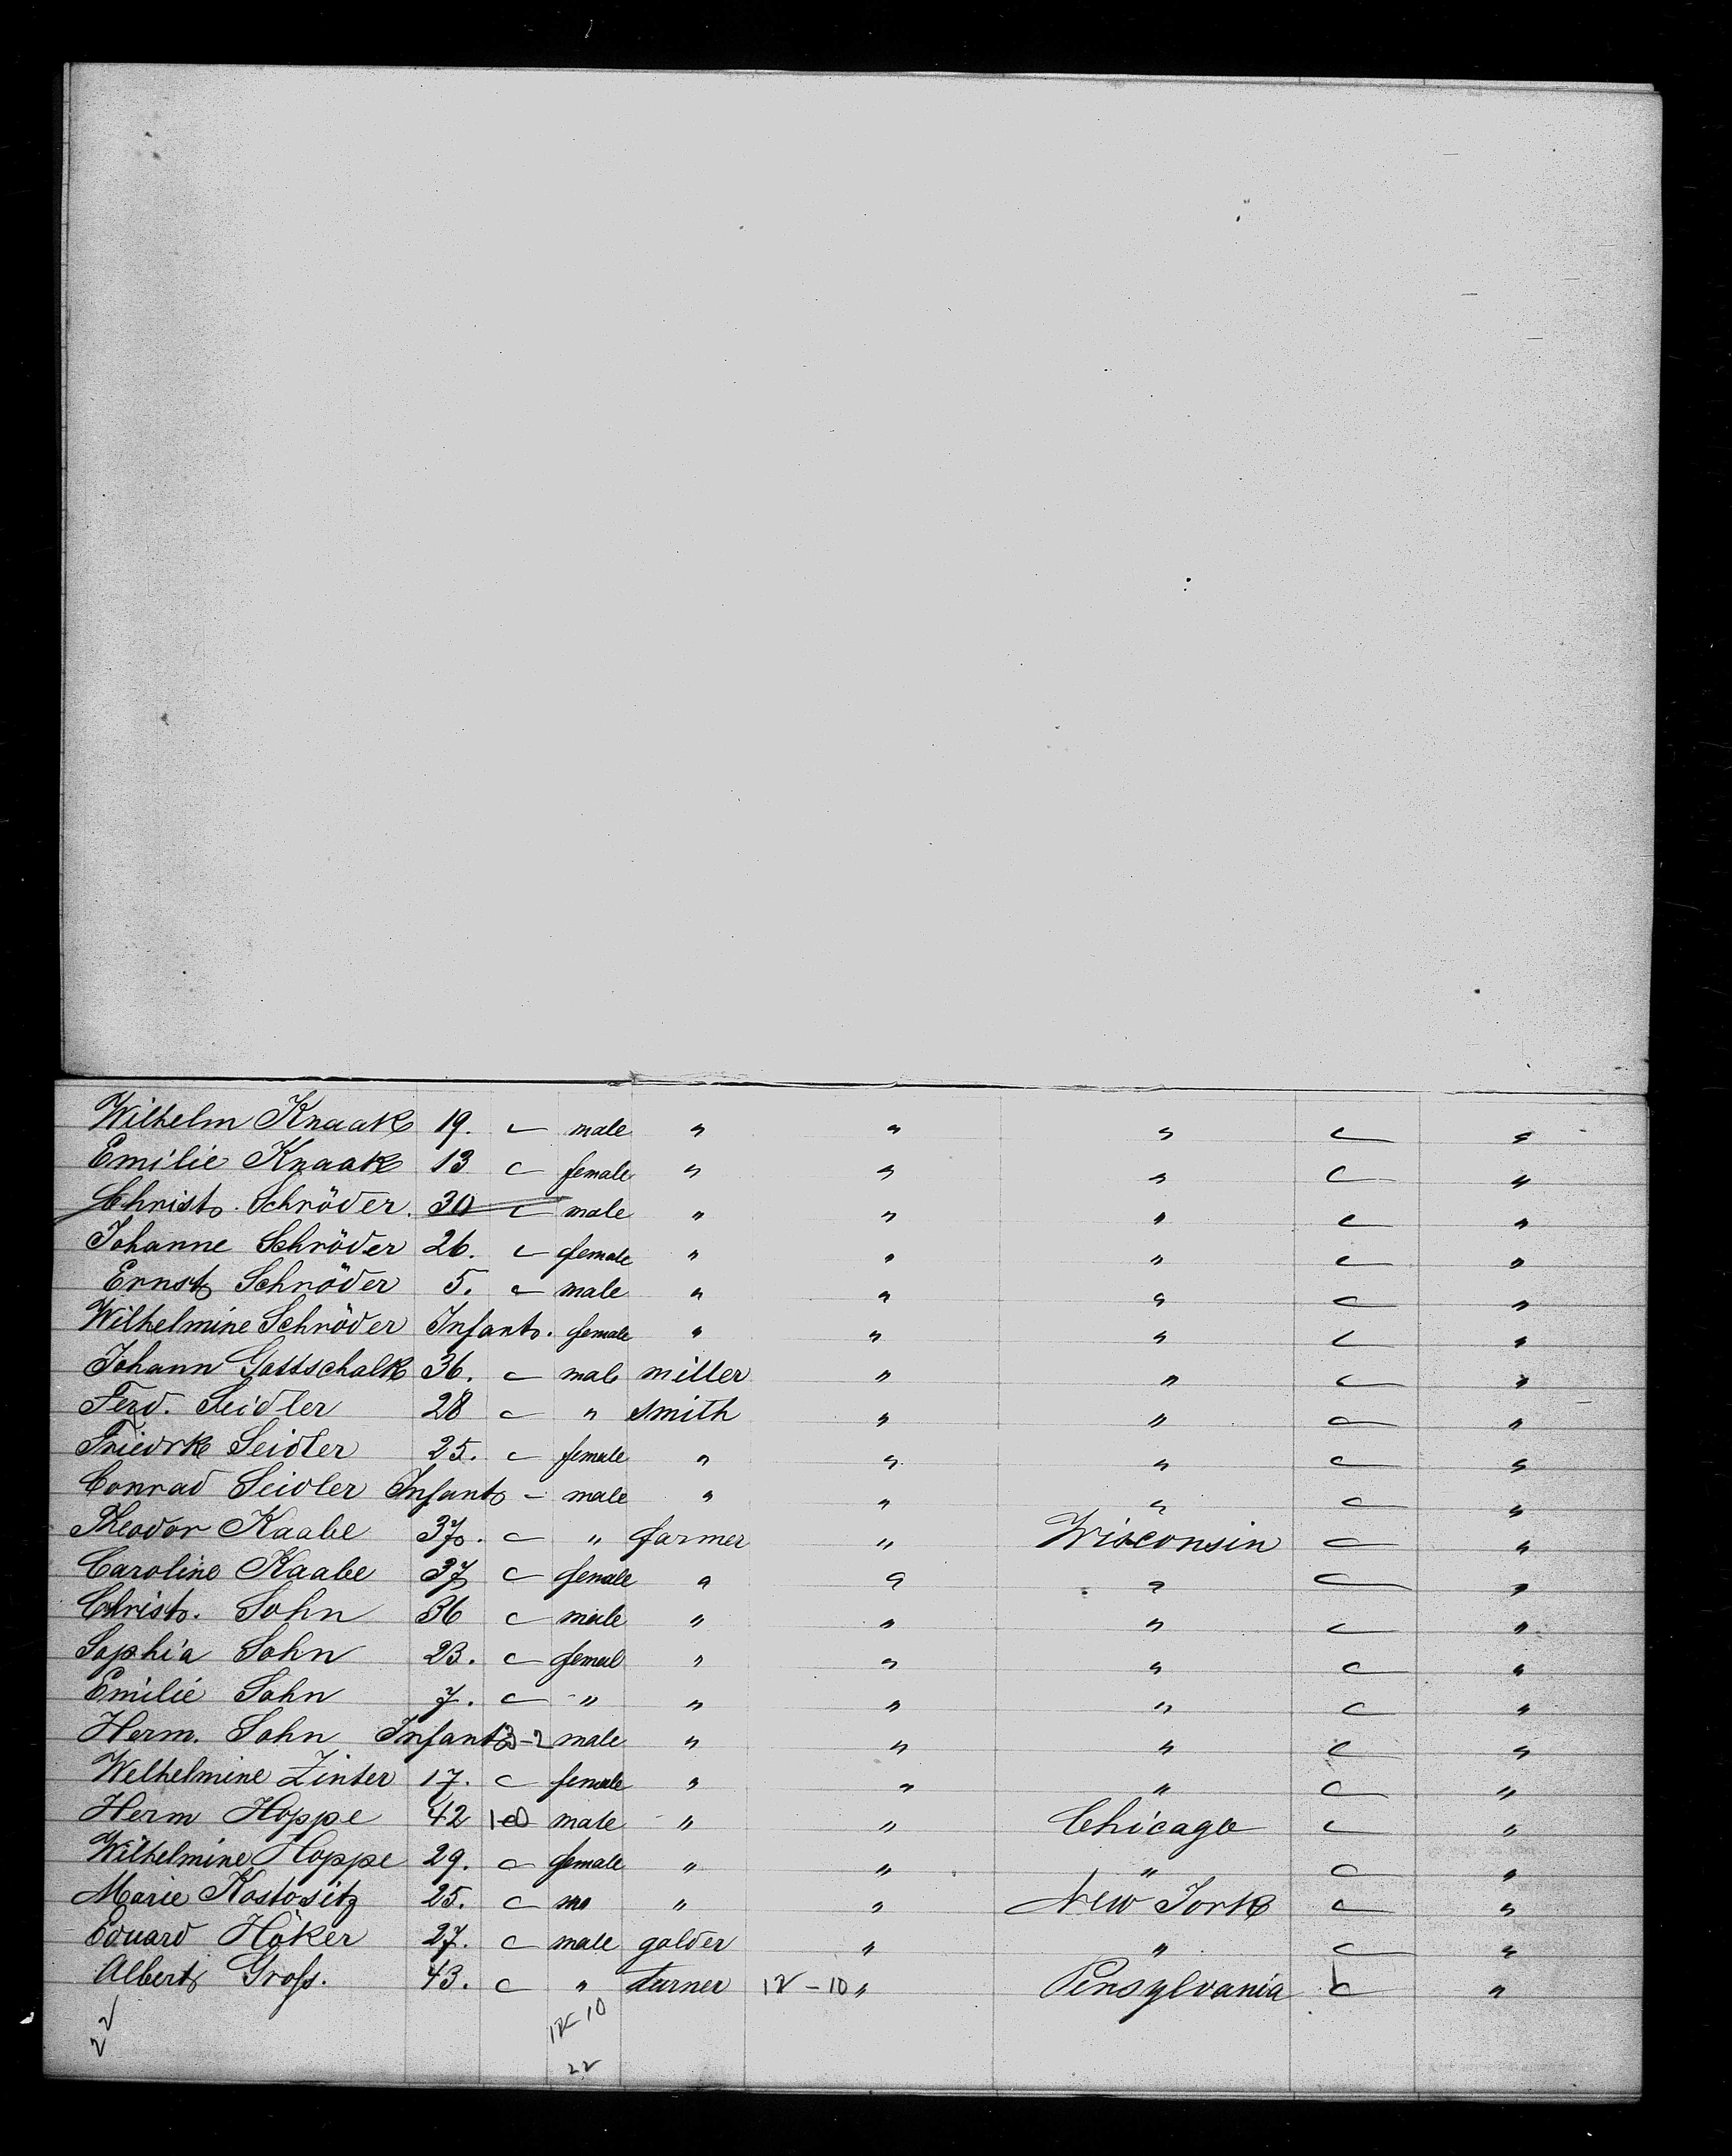 Wilhelm Knaak 19. c male " " " c "
Emilie Knaak 13 c female " " " c "
Christ. Schröder. 30 c male " " " c "
Johanne Schröder 26. c female " " " c "
Ernst Schröder 5. c male " " " c "
Wilhelmine Schröder Infant. female " " " c "
Johann Gottschalk 36. c male miller " " c "
Ferd. Seidler 28 c " smith " " c "
Friedrke Seidler 25. c female " " " c "
Conrad Seidler Infant - male " " " c "
Theodor Kaabe 37. c " farmer " Wisconsin c "
Caroline Kaabe 37 c female " " " c "
Christ. Sohn 36 c male " " " c "
Sophia Sohn 23. c femal " " " c "
Emilie Sohn 7. c " " " " c "
Herm. Sohn Infant 3-2 male " " " c "
Welhelmine Zinter 17. c female " " " c "
Herm Hoppe 42 10 male " " Chicago c "
Wilhelmine Hoppe 29. c female " " " c "
Marie Kostositz 25. c " " New York c "
Eduard Höker 27. c male golder " " c "
Albert Groſs. 43. c " turner 12-10 " Pensylvania c "
12-10
22
22